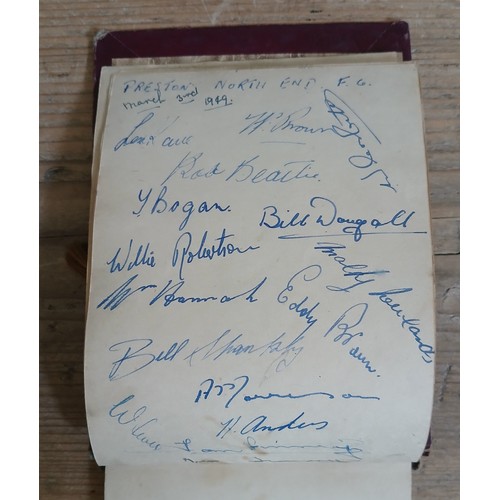 PRESTON NORTH END F.C.
March 3rd 1949.
H Brown
Rob Beattie.
T. Bogan.
Bill Dougall
Willie Robertson
Wm Hannah
Eddy Brown.
Bill Shankly
A Morrison
H. Anders